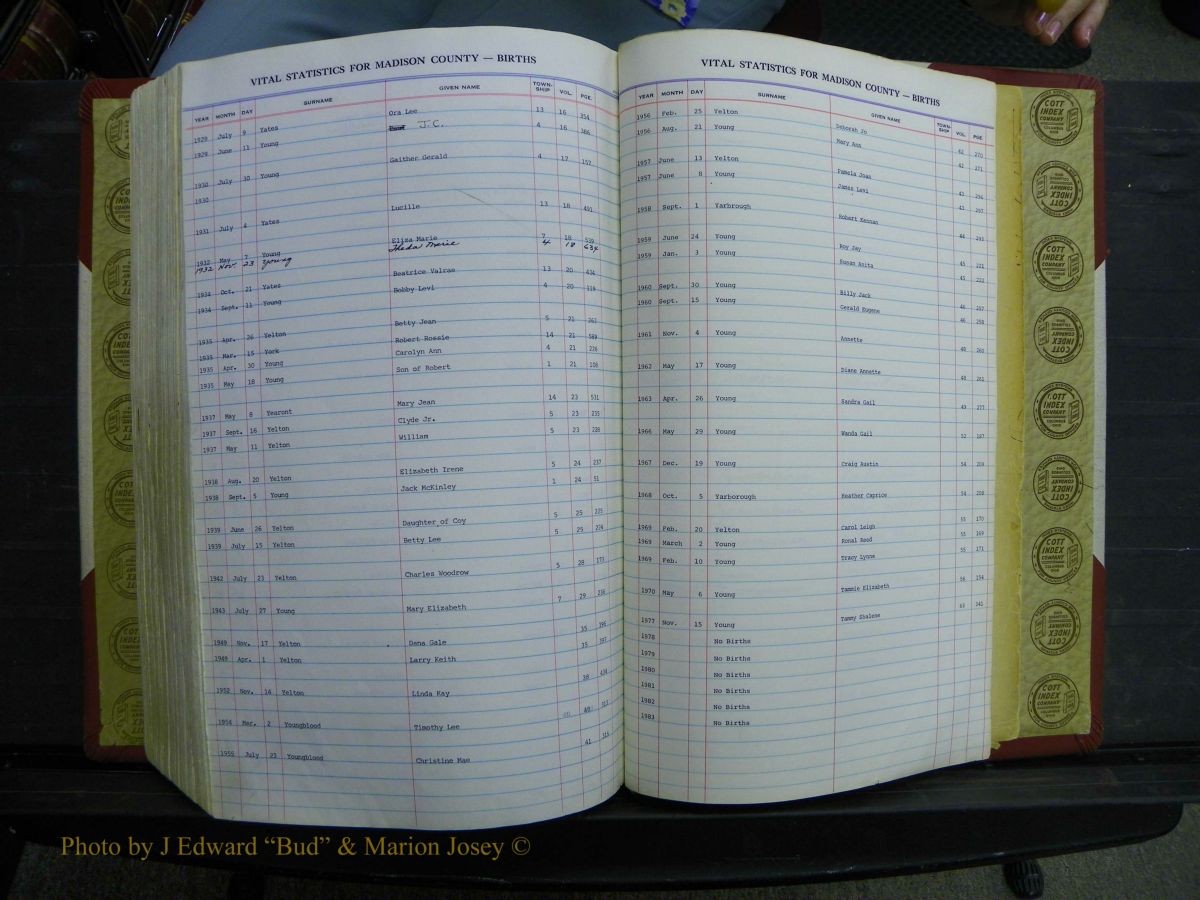 VITAL STATISTICS FOR MADISON COUNTY — BIRTHS
YEAR MONTH DAY SURNAME GIVEN NAME TOWN-SHIP VOL. PGE.
1929 July 9 Yates Ora Lee 13 16 354
1929 June 11 Young J.C. 4 16 386
1930 July 30 Young Gaither Gerald 4 17 157
1930
1931 July 4 Yates Lucille 13 18 491
1932 May 7 Young Eliza Marie 7 18 539
1932 Nov. 23 Young Theda Marie 4 18 634
1934 Oct. 21 Yates Beatrice Valrae 13 20 434
1934 Sept. 11 Young Bobby Levi 4 20 119
1935 Apr. 26 Yelton Betty Jean 5 21 261
1935 Mar. 15 York Robert Rossie 14 21 589
1935 Apr. 30 Young Carolyn Ann 4 21 226
1935 May 18 Young Son of Robert 1 21 108
1937 May 8 Yearont Mary Jean 14 23 531
1937 Sept. 16 Yelton Clyde Jr. 5 23 235
1937 May 11 Yelton William 5 23 228
1938 Aug. 20 Yelton Elizabeth Irene 5 24 237
1938 Sept. 5 Young Jack McKinley 1 24 51
1939 June 26 Yelton Daughter of Coy 5 25 225
1939 July 15 Yelton Betty Lee 5 25 224
1942 July 23 Yelton Charles Woodrow 5 28 173
1943 July 27 Young Mary Elizabeth 7 29 236
1949 Nov. 17 Yelton Dena Gale 35 396
1949 Apr. 1 Yelton Larry Keith 35 397
1952 Nov. 14 Yelton Linda Kay 38 434
1954 Mar. 2 Youngblood Timothy Lee 40 313
1955 July 23 Youngblood Christine Mae 41 316
VITAL STATISTICS FOR MADISON COUNTY — BIRTHS
YEAR MONTH DAY SURNAME GIVEN NAME TOWN-SHIP VOL. PGE.
1956 Feb. 25 Yelton Deborah Jo 42 270
1956 Aug. 21 Young Mary Ann 42 271
1957 June 13 Yelton Pamela Joan 43 296
1957 June 8 Young James Levi 43 297
1958 Sept. 1 Yarbrough Robert Kennan 44 293
1959 June 24 Young Roy Jay 45 221
1959 Jan. 3 Young Susan Anita 45 222
1960 Sept. 30 Young Billy Jack 46 257
1960 Sept. 15 Young Gerald Eugene 46 258
1961 Nov. 4 Young Annette 260
1962 May 17 Young Diane Annette 48 261
1963 Apr. 26 Young Sandra Gail 49 277
1966 May 29 Young Wanda Gail 52 187
1967 Dec. 19 Young Craig Austin 54 209
1968 Oct. 5 Yarborough Heather Caprice 54 208
1969 Feb. 20 Yelton Carol Leigh 55 170
1969 March 2 Young Ronal Reed 55 169
1969 Feb. 10 Young Tracy Lynne 55 171
1970 May 6 Young Tammie Elizabeth 56 194
1977 Nov. 15 Young Tammy Shalene 63 141
1978 No Births
1979 No Births
1980 No Births
1981 No Births
1982 No Births
1983 No Births
COTT INDEX COMPANY COLUMBUS OHIO
Photo by J Edward “Bud” & Marion Josey ©